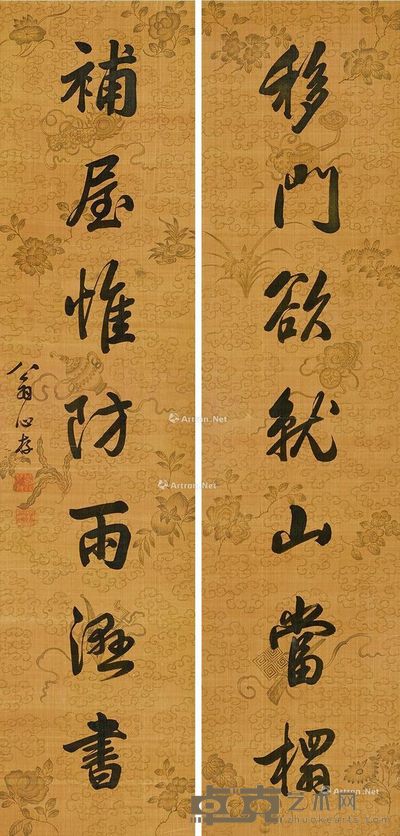 移門欲就山當榻
補屋惟防雨溼書
翁心存
Artron.Net
Artron.Net
Artron.Net
Artron.Net
卓克艺术网